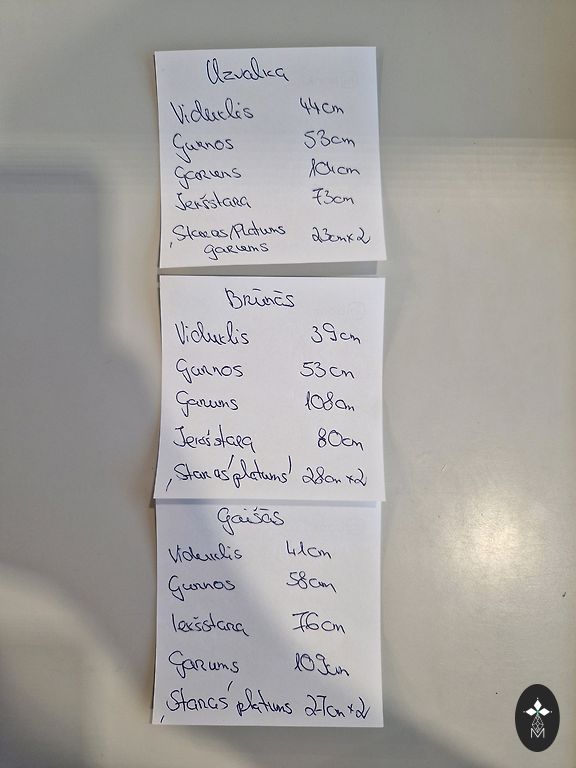 Uzvalka
Viduklis 44cm
Gurnos 53cm
Garums 104cm
Iekšstara 73cm
Staras/Platums 23cm×2
garums
Brūnās
Viduklis 39cm
Gurnos 53cm
Garums 108cm
Iekšstara 80cm
Staras platums 28cm×2
Gaišās
Viduklis 41cm
Gurnos 58cm
Iekšstara 76cm
Garums 109cm
Staras platums 27cm×2
M